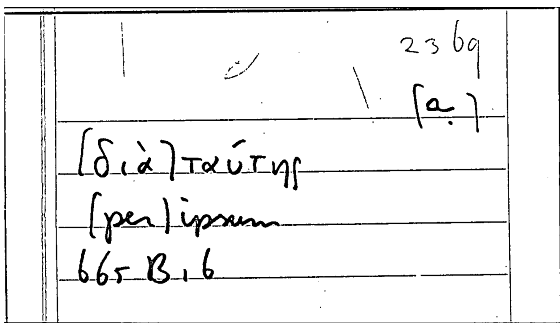 2369
[a.]
[διὰ] ταύτης
[per] ipsum
665 B, 6